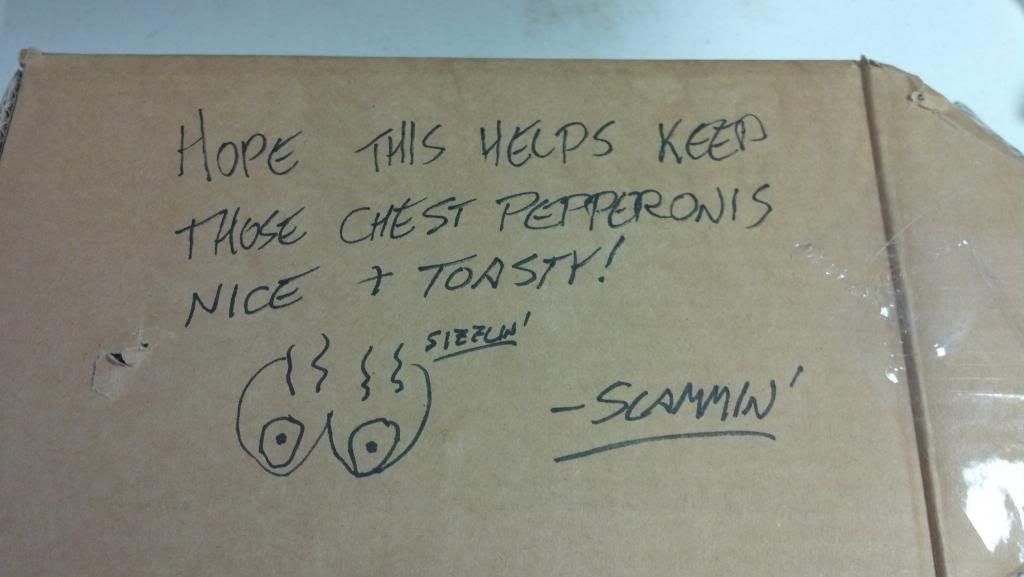 HOPE THIS HELPS KEEP
THOSE CHEST PEPPERONIS
NICE + TOASTY!
SIZZLIN'
-SCAMMIN'